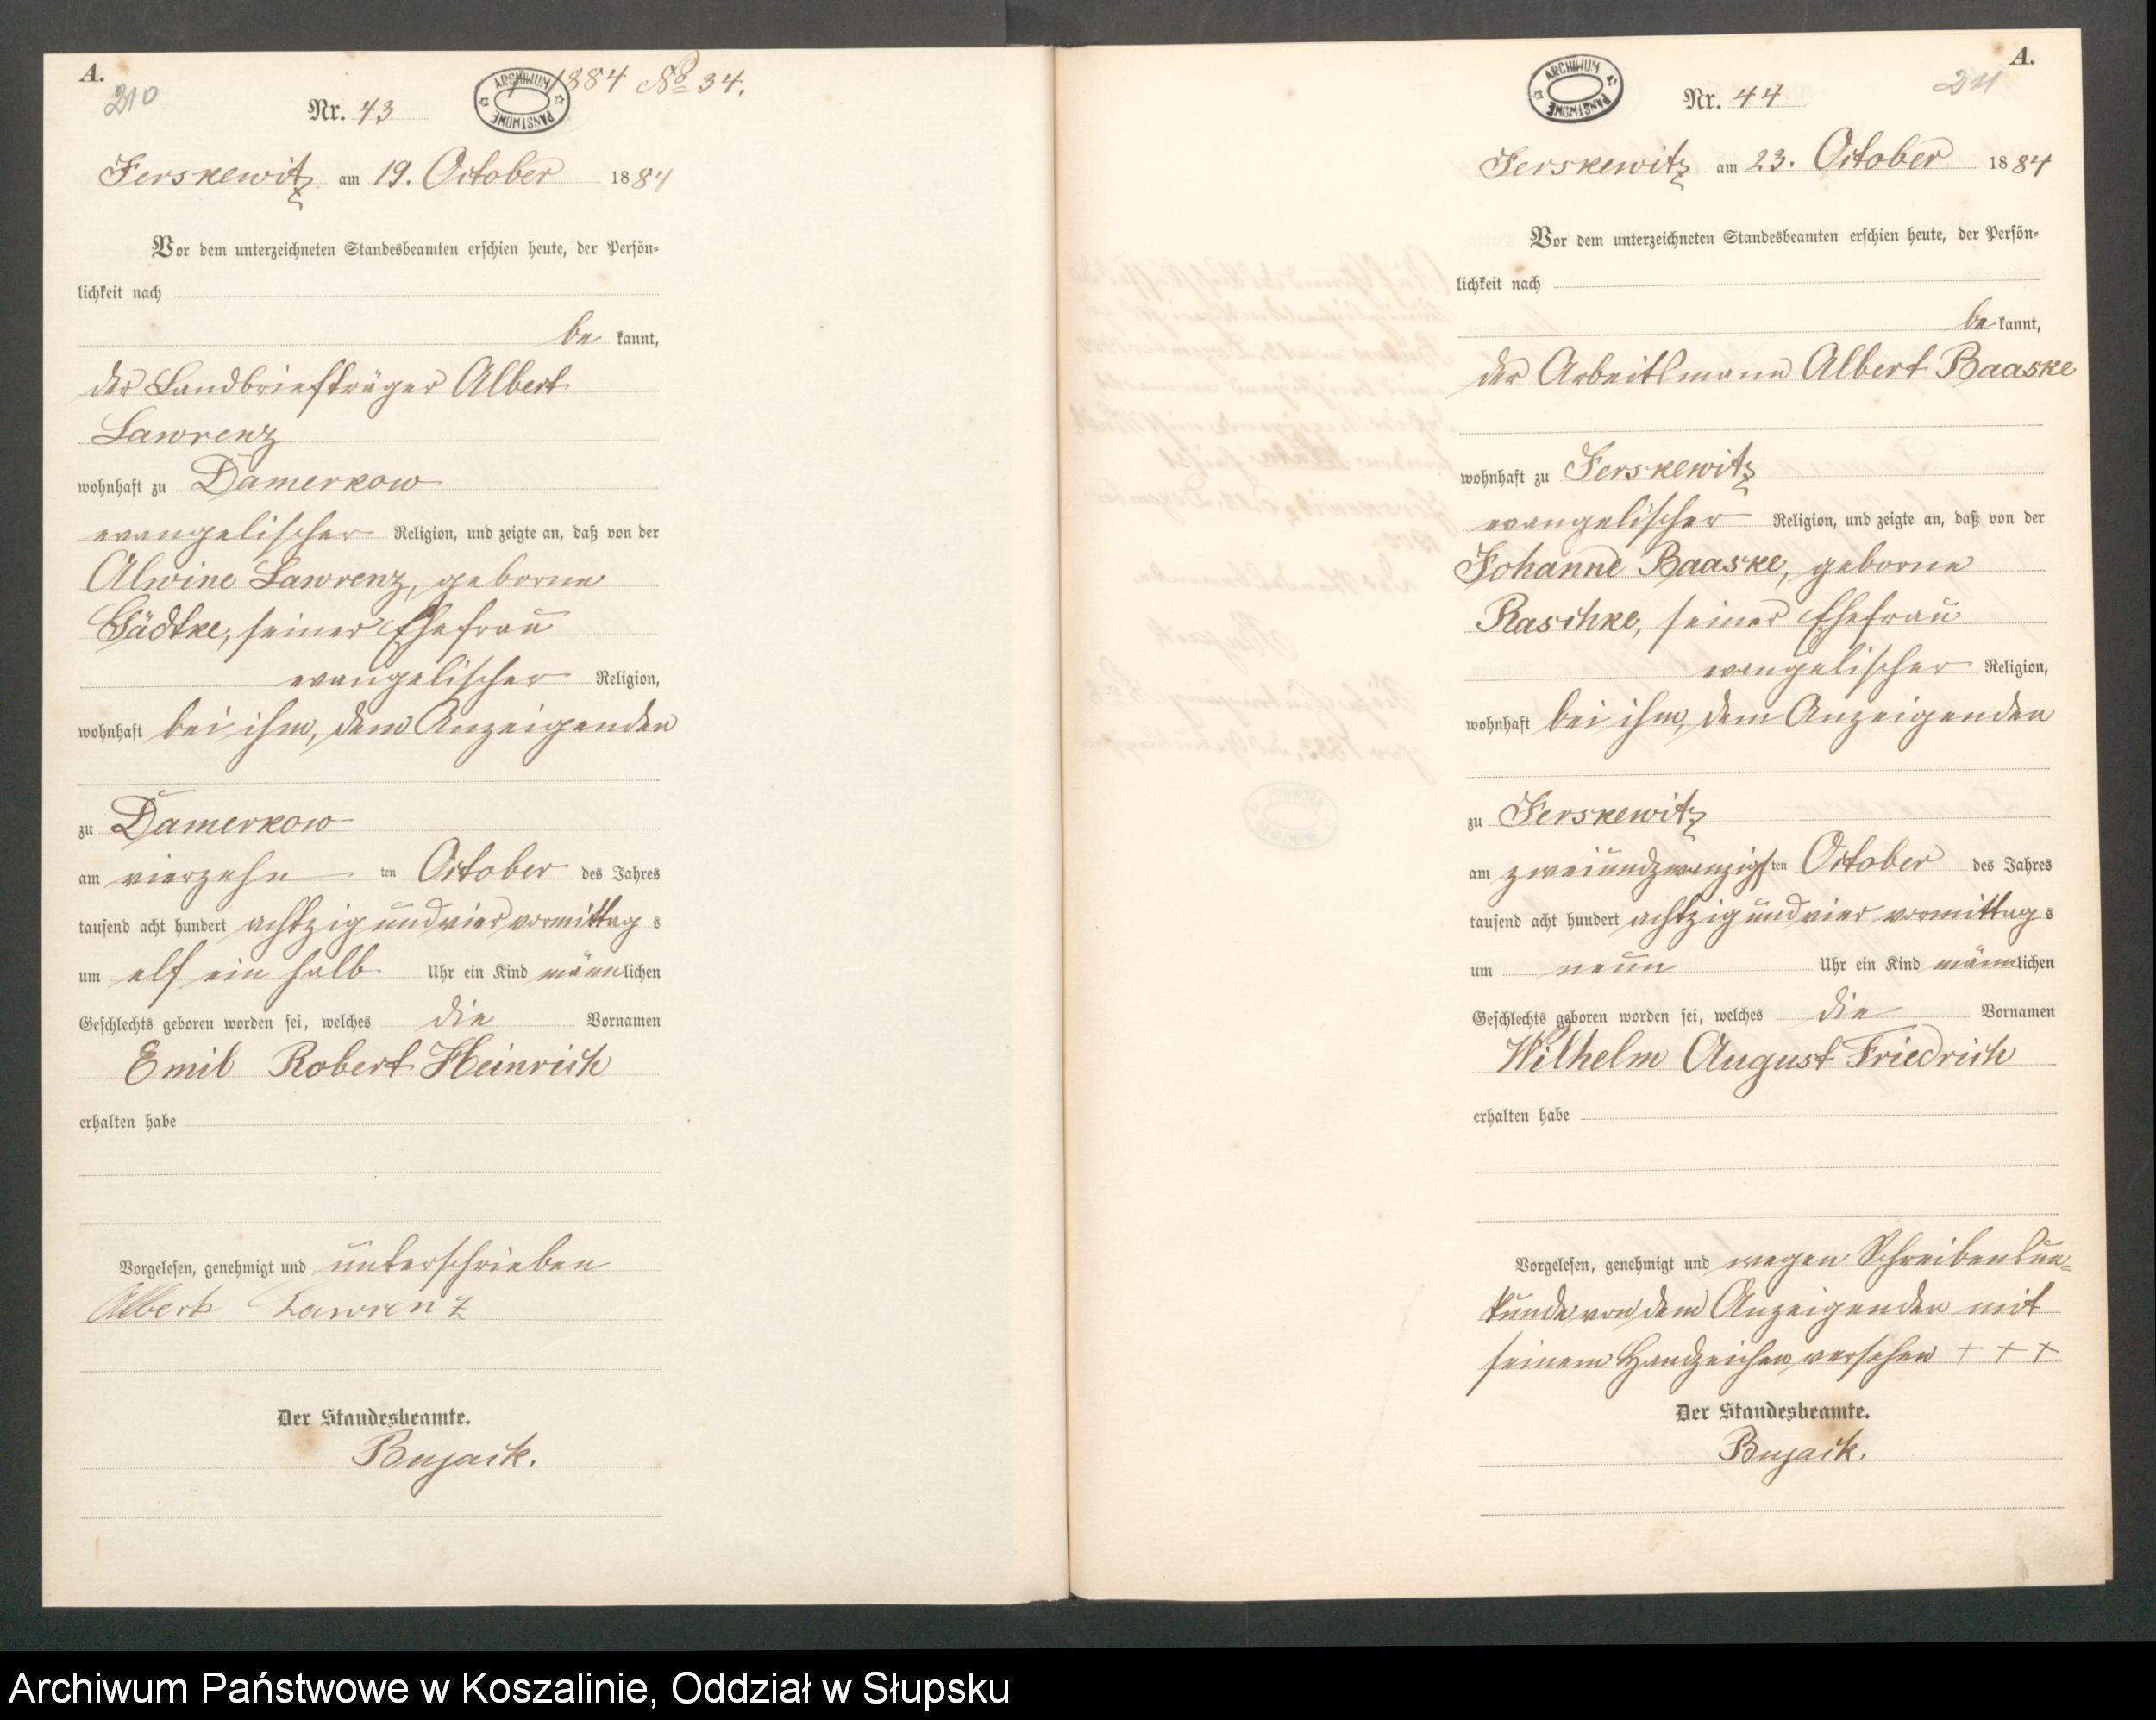 A.
210
Nr. 43
ARCHIWUM PAŃSTWOWE
† 1884 No 34.
Jerskewitz am 19. October 1884
Vor dem unterzeichneten Standesbeamten erschien heute, der Persön-
lichkeit nach
be kannt,
der Landbriefträger Albert
Lawrenz
wohnhaft zu Damerkow
evangelischer Religion, und zeigte an, daß von der
Alwine Lawrenz, geborne
Gädtke, seiner Ehefrau
evangelischer Religion,
wohnhaft bei ihm, dem Anzeigenden
zu Damerkow
am vierzehn ten October des Jahres
tausend acht hundert achtzig und vier vormittag s
um elf ein halb Uhr ein Kind männlichen
Geschlechts geboren worden sei, welches die Vornamen
Emil Robert Heinrich
erhalten habe
Vorgelesen, genehmigt und unterschrieben
Albert Lawrenz
Der Standesbeamte.
Bujack.
A.
211
Nr. 44
ARCHIWUM PAŃSTWOWE
Jerskewitz am 23. October 1884
Vor dem unterzeichneten Standesbeamten erschien heute, der Persön-
lichkeit nach
be kannt,
der Arbeitsmann Albert Baaske
wohnhaft zu Jerskewitz
evangelischer Religion, und zeigte an, daß von der
Johanne Baaske, geborne
Raschke, seiner Ehefrau
evangelischer Religion,
wohnhaft bei ihm, dem Anzeigenden
zu Jerskewitz
am zweiundzwanzigs ten October des Jahres
tausend acht hundert achtzig und vier vormittag s
um neun Uhr ein Kind männlichen
Geschlechts geboren worden sei, welches die Vornamen
Wilhelm August Friedrich
erhalten habe
Vorgelesen, genehmigt und wegen Schreibensun-
kunde von dem Anzeigenden mit
seinem Handzeichen versehen + + +
Der Standesbeamte.
Bujack.
Archiwum Państwowe w Koszalinie, Oddział w Słupsku